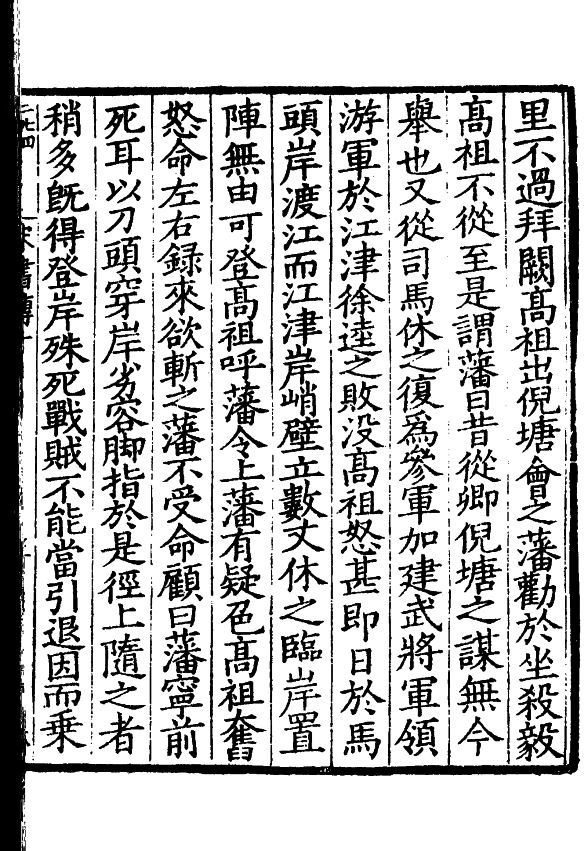 里不過拜闕髙祖出倪塘會之藩勸於坐殺毅
髙祖不從至是謂藩曰昔從卿倪塘之謀無今
舉也又從司馬休之復為參軍加建武將軍領
游軍於江津徐逵之敗没髙祖怒甚即日於馬
頭岸渡江而江津岸峭壁立數丈休之臨岸置
陣無由可登髙祖呼藩令上藩有疑色髙祖奮
怒命左右録來欲斬之藩不受命顧曰藩寧前
死耳以刀頭穿岸劣容脚指於是徑上隨之者
稍多旣得登岸殊死戰賊不能當引退因而乗